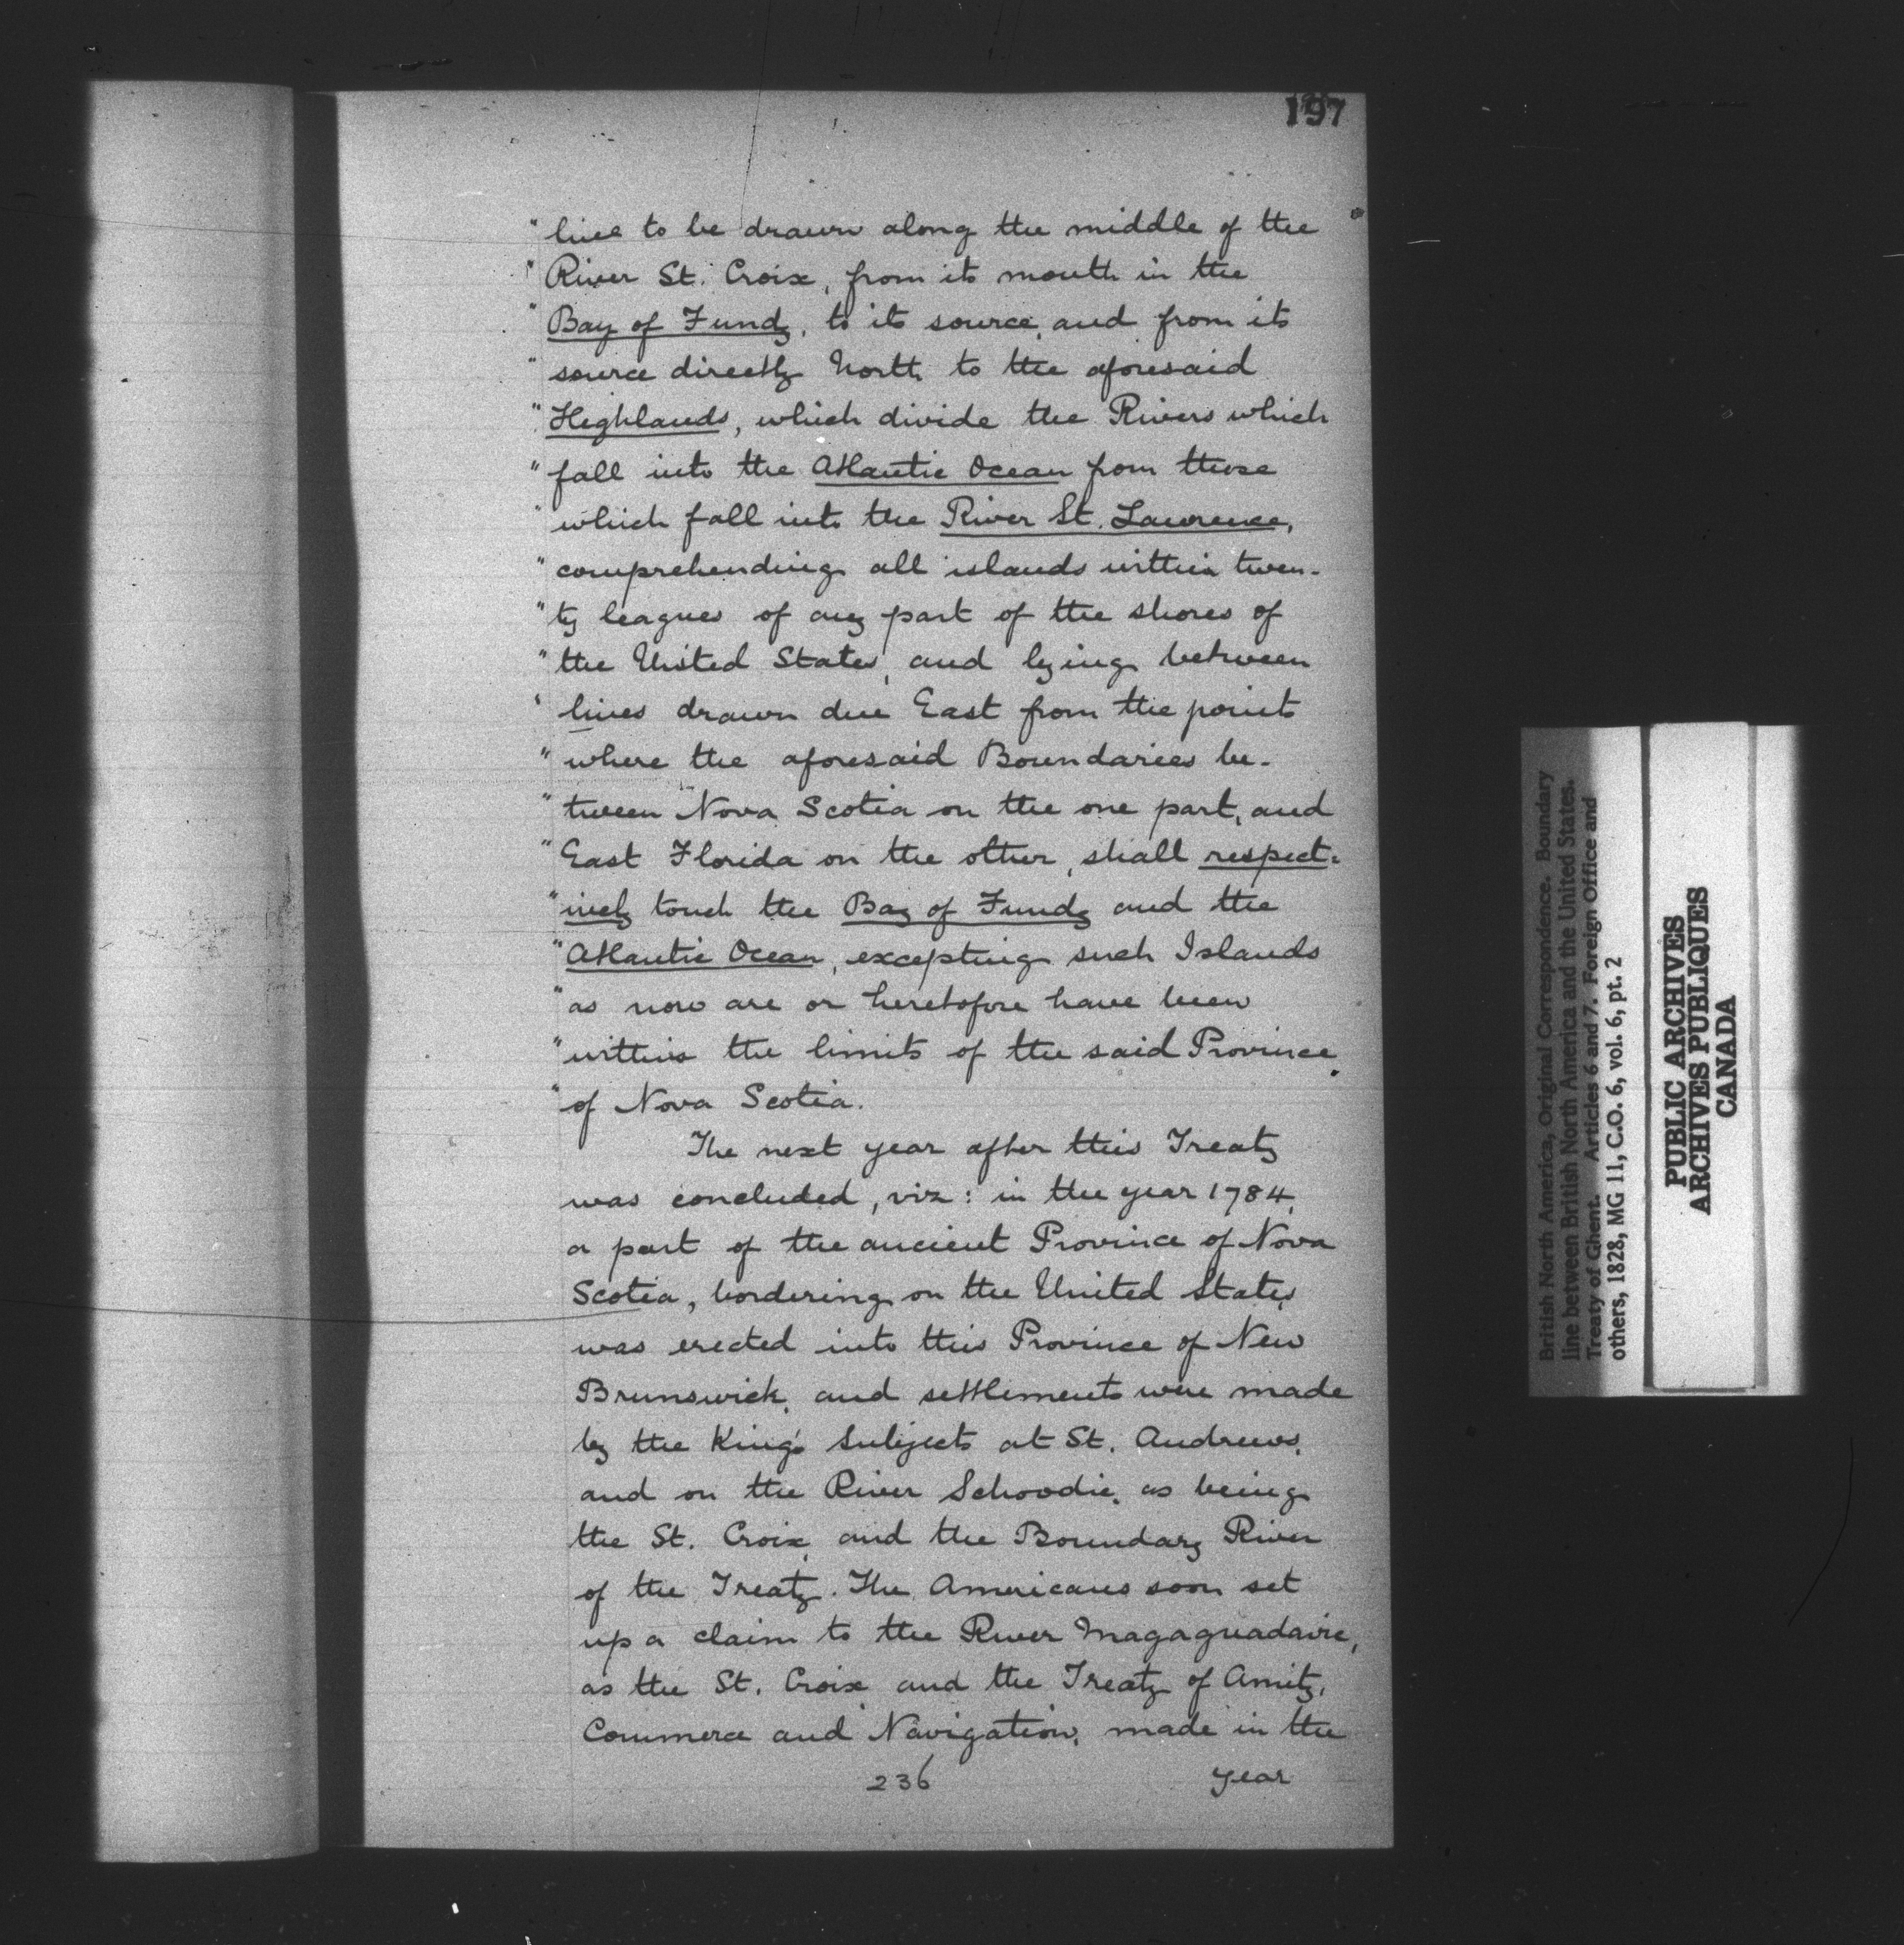 197
" line to be drawn along the middle of the
" River St. Croix, from its mouth in the
" Bay of Fundy, to its source, and from its
" source directly North, to the aforesaid
" Highlands, which divide the Rivers which
" fall into the Atlantic Ocean from those
" which fall into the River St. Lawrence,
" comprehending all islands within twen-
" ty leagues of any part of the shores of
" the United States, and lying between
" lines drawn due East from the points
" where the aforesaid Boundaries be-
" tween Nova Scotia on the one part, and
" East Florida on the other, shall respect-
" ively touch the Bay of Fundy and the
" Atlantic Ocean, excepting such Islands
" as now are or heretofore have been
" within the limits of the said Province
" of Nova Scotia.
The next year after this Treaty
was concluded, viz: in the year 1784,
a part of the ancient Province of Nova
Scotia, bordering on the United States,
was erected into this Province of New
Brunswick, and settlements were made
by the King's Subjects at St. Andrews,
and on the River Schoodic, as being
the St. Croix, and the Boundary River
of the Treaty. The Americans soon set
up a claim to the River Magaguadavic,
as the St. Croix and the Treaty of Amity,
Commerce and Navigation, made in the
236 year
British North America, Original Correspondence. Boundary
line between British North America and the United States.
Treaty of Ghent. Articles 6 and 7. Foreign Office and
others, 1828, MG 11, C.O. 6, vol. 6, pt. 2
PUBLIC ARCHIVES
ARCHIVES PUBLIQUES
CANADA